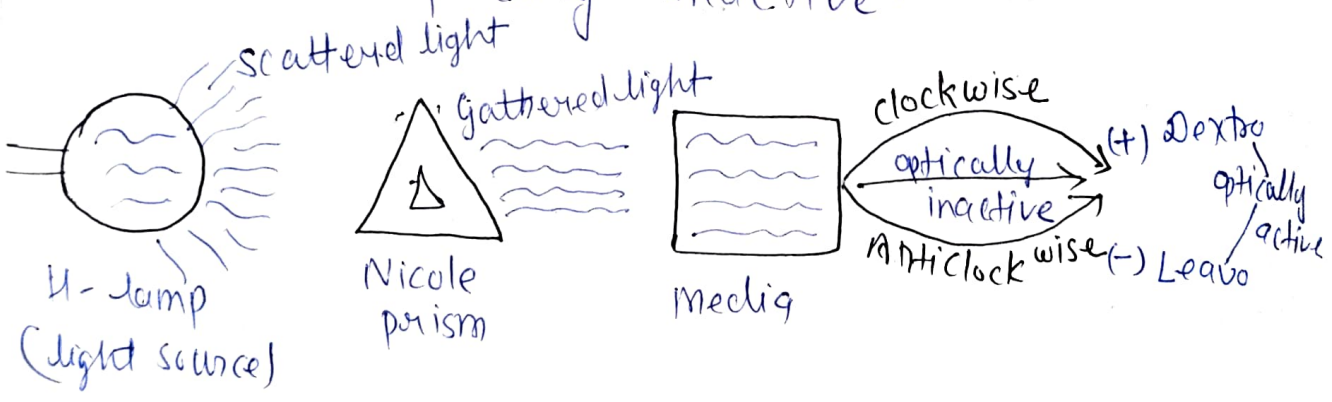 inactive
Scattered light
Gathered light
clockwise
(+) Dextro
optically
inactive
optically
active
Anticlockwise
(-) Leavo
H-lamp
(light source)
Nicole
prism
Media